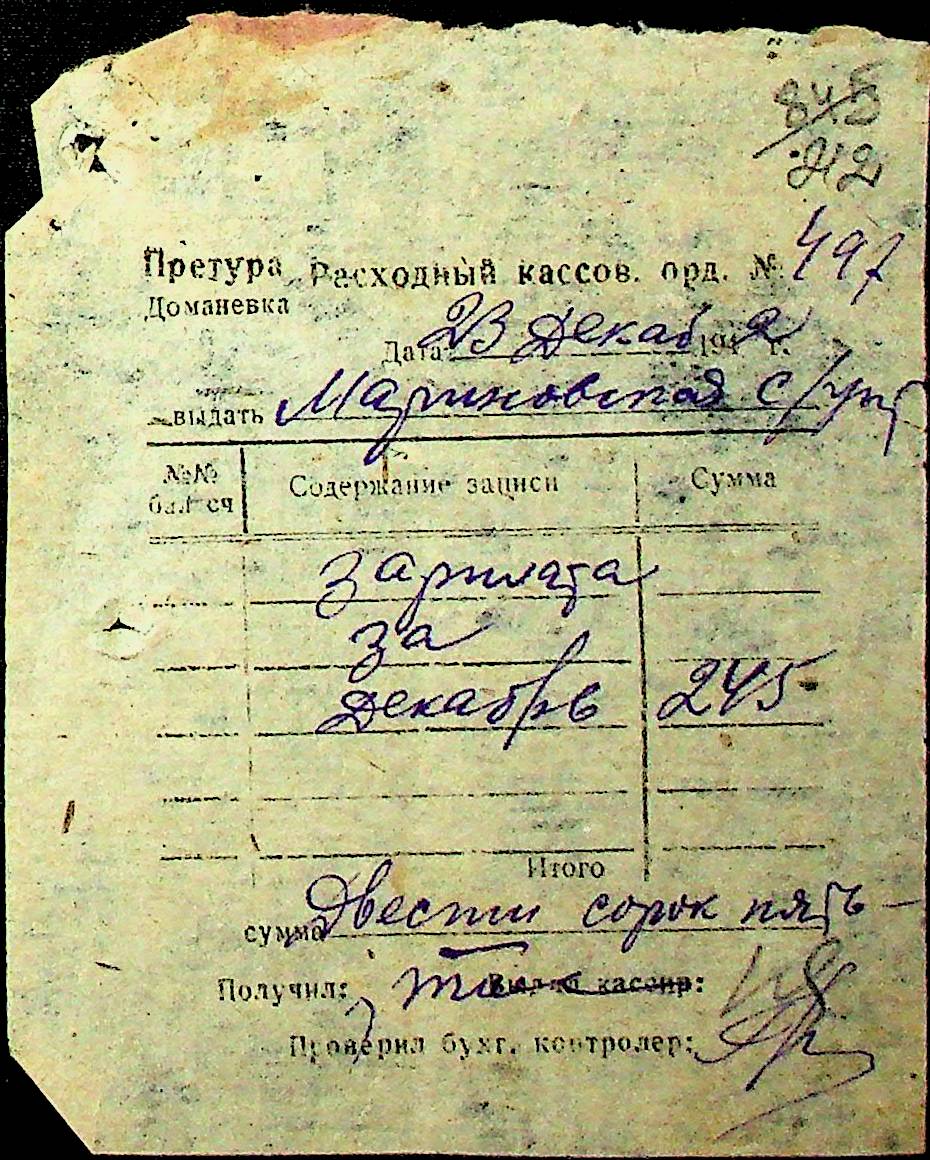 845
212
Претура Расходный кассов. орд. № 497
Доманевка
Дата 23 Декабр 194 2 г.
выдать Мариновской с/упр
№№ бал сч Содержание записи Сумма
зарплата
за
декабрь 245
Итого
сумма Двести сорок пять
Получил: Выдал кассир:
Проверил бухг. контролер: